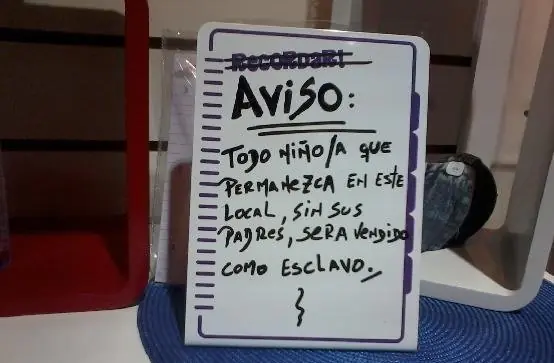 RecoRDaR!
AViSO:
TODO NIÑO/A QUE
PERMANEZCA EN ESTE
LOCAL, SIN SUS
PADRES, SERA VENDIDO
COMO ESCLAVO.